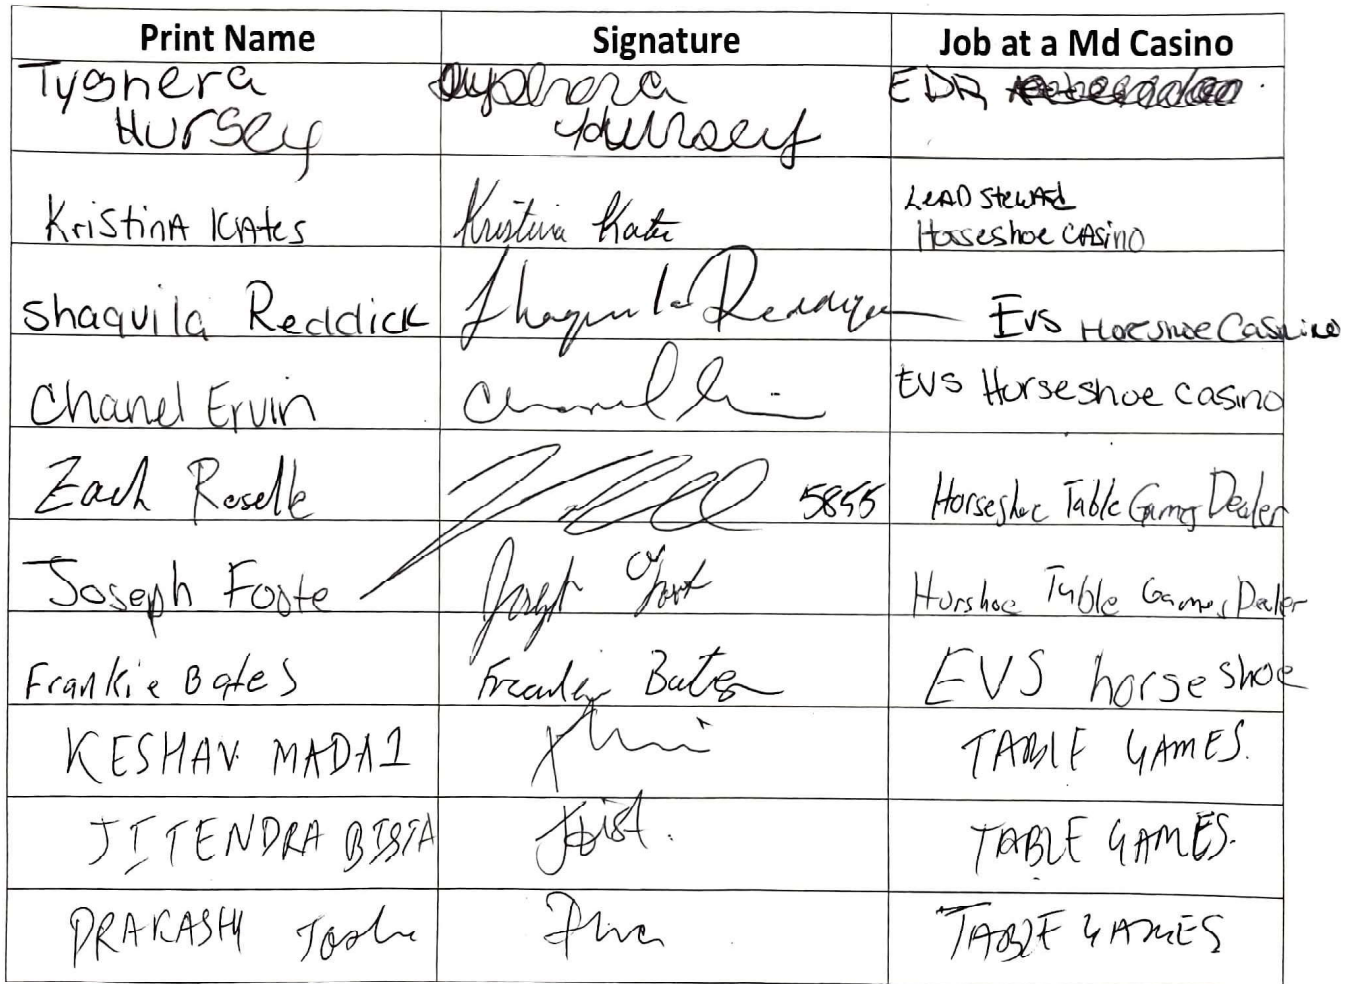 Print Name Signature Job at a Md Casino
Tyshera Hursey EDR
Kristina Kates Kristina Kates Lead Steward Horseshoe Casino
Shaquila Reddick Shaquila Reddick EVS Horeshoe Casnino
Chanel Ervin Chanel EVS Horseshoe Casino
Zach Roselle 5855 Horseshoe Table Games Dealer
Joseph Foote Joseph Foote Horshoe Table Games Dealer
Frankie Bates Frankie Bates EVS horseshoe
KESHAV MADAI TABLE GAMES.
JITENDRA BISTA JBist. TABLE GAMES.
PRAKASH Joshi TABLE GAMES